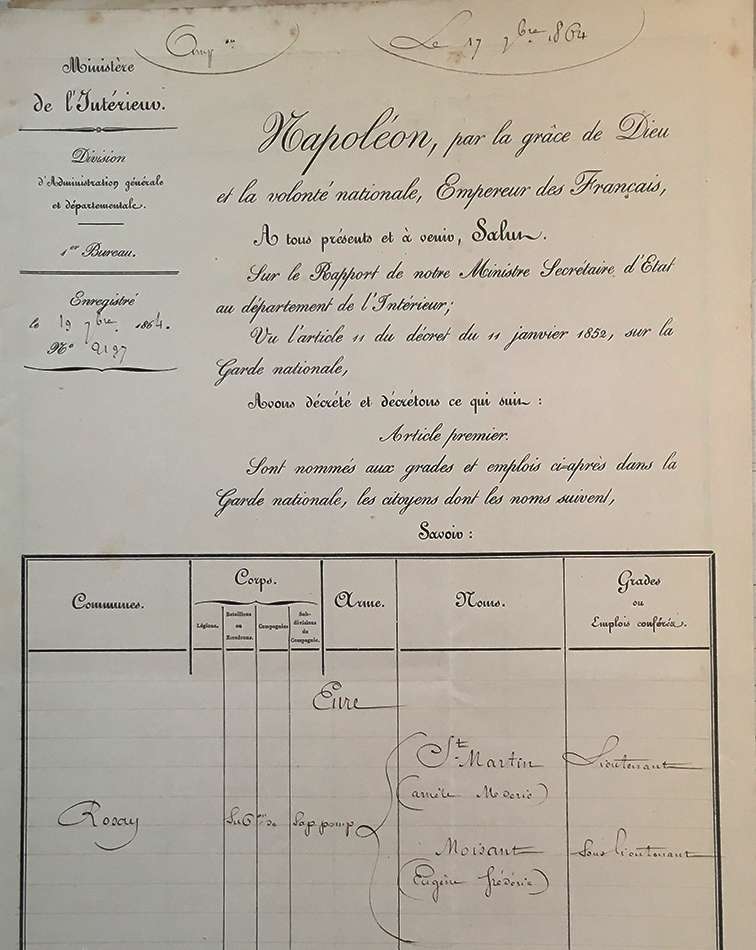 Le 17 7bre 1864
Ministère
de l'Intérieur.
Division
d'Administration générale
et départementale.
1er Bureau.
Enregistré
le 19 7bre 1864.
No 2197
Napoléon, par la grâce de Dieu
et la volonté nationale, Empereur des Français,
A tous présents et à venir, Salut.
Sur le Rapport de notre Ministre Secrétaire d'Etat
au département de l'Intérieur;
Vu l'article 11 du décret du 11 janvier 1852, sur la
Garde nationale,
Avons décrété et décrétons ce qui suit :
Article premier.
Sont nommés aux grades et emplois ci-après dans la
Garde nationale, les citoyens dont les noms suivent,
Savoir :
Communes.
Corps.
Légions.
Bataillons
ou
Escadrons.
Compagnies
Sub-
divisions
de
Compagnie.
Arme.
Noms.
Grades
ou
Emplois conférés.
Eure
St Martin
Lieutenant
Rosay
Sub on de
Sap. pomp
Moisant
Sous lieutenant
(Eugène frédéric)